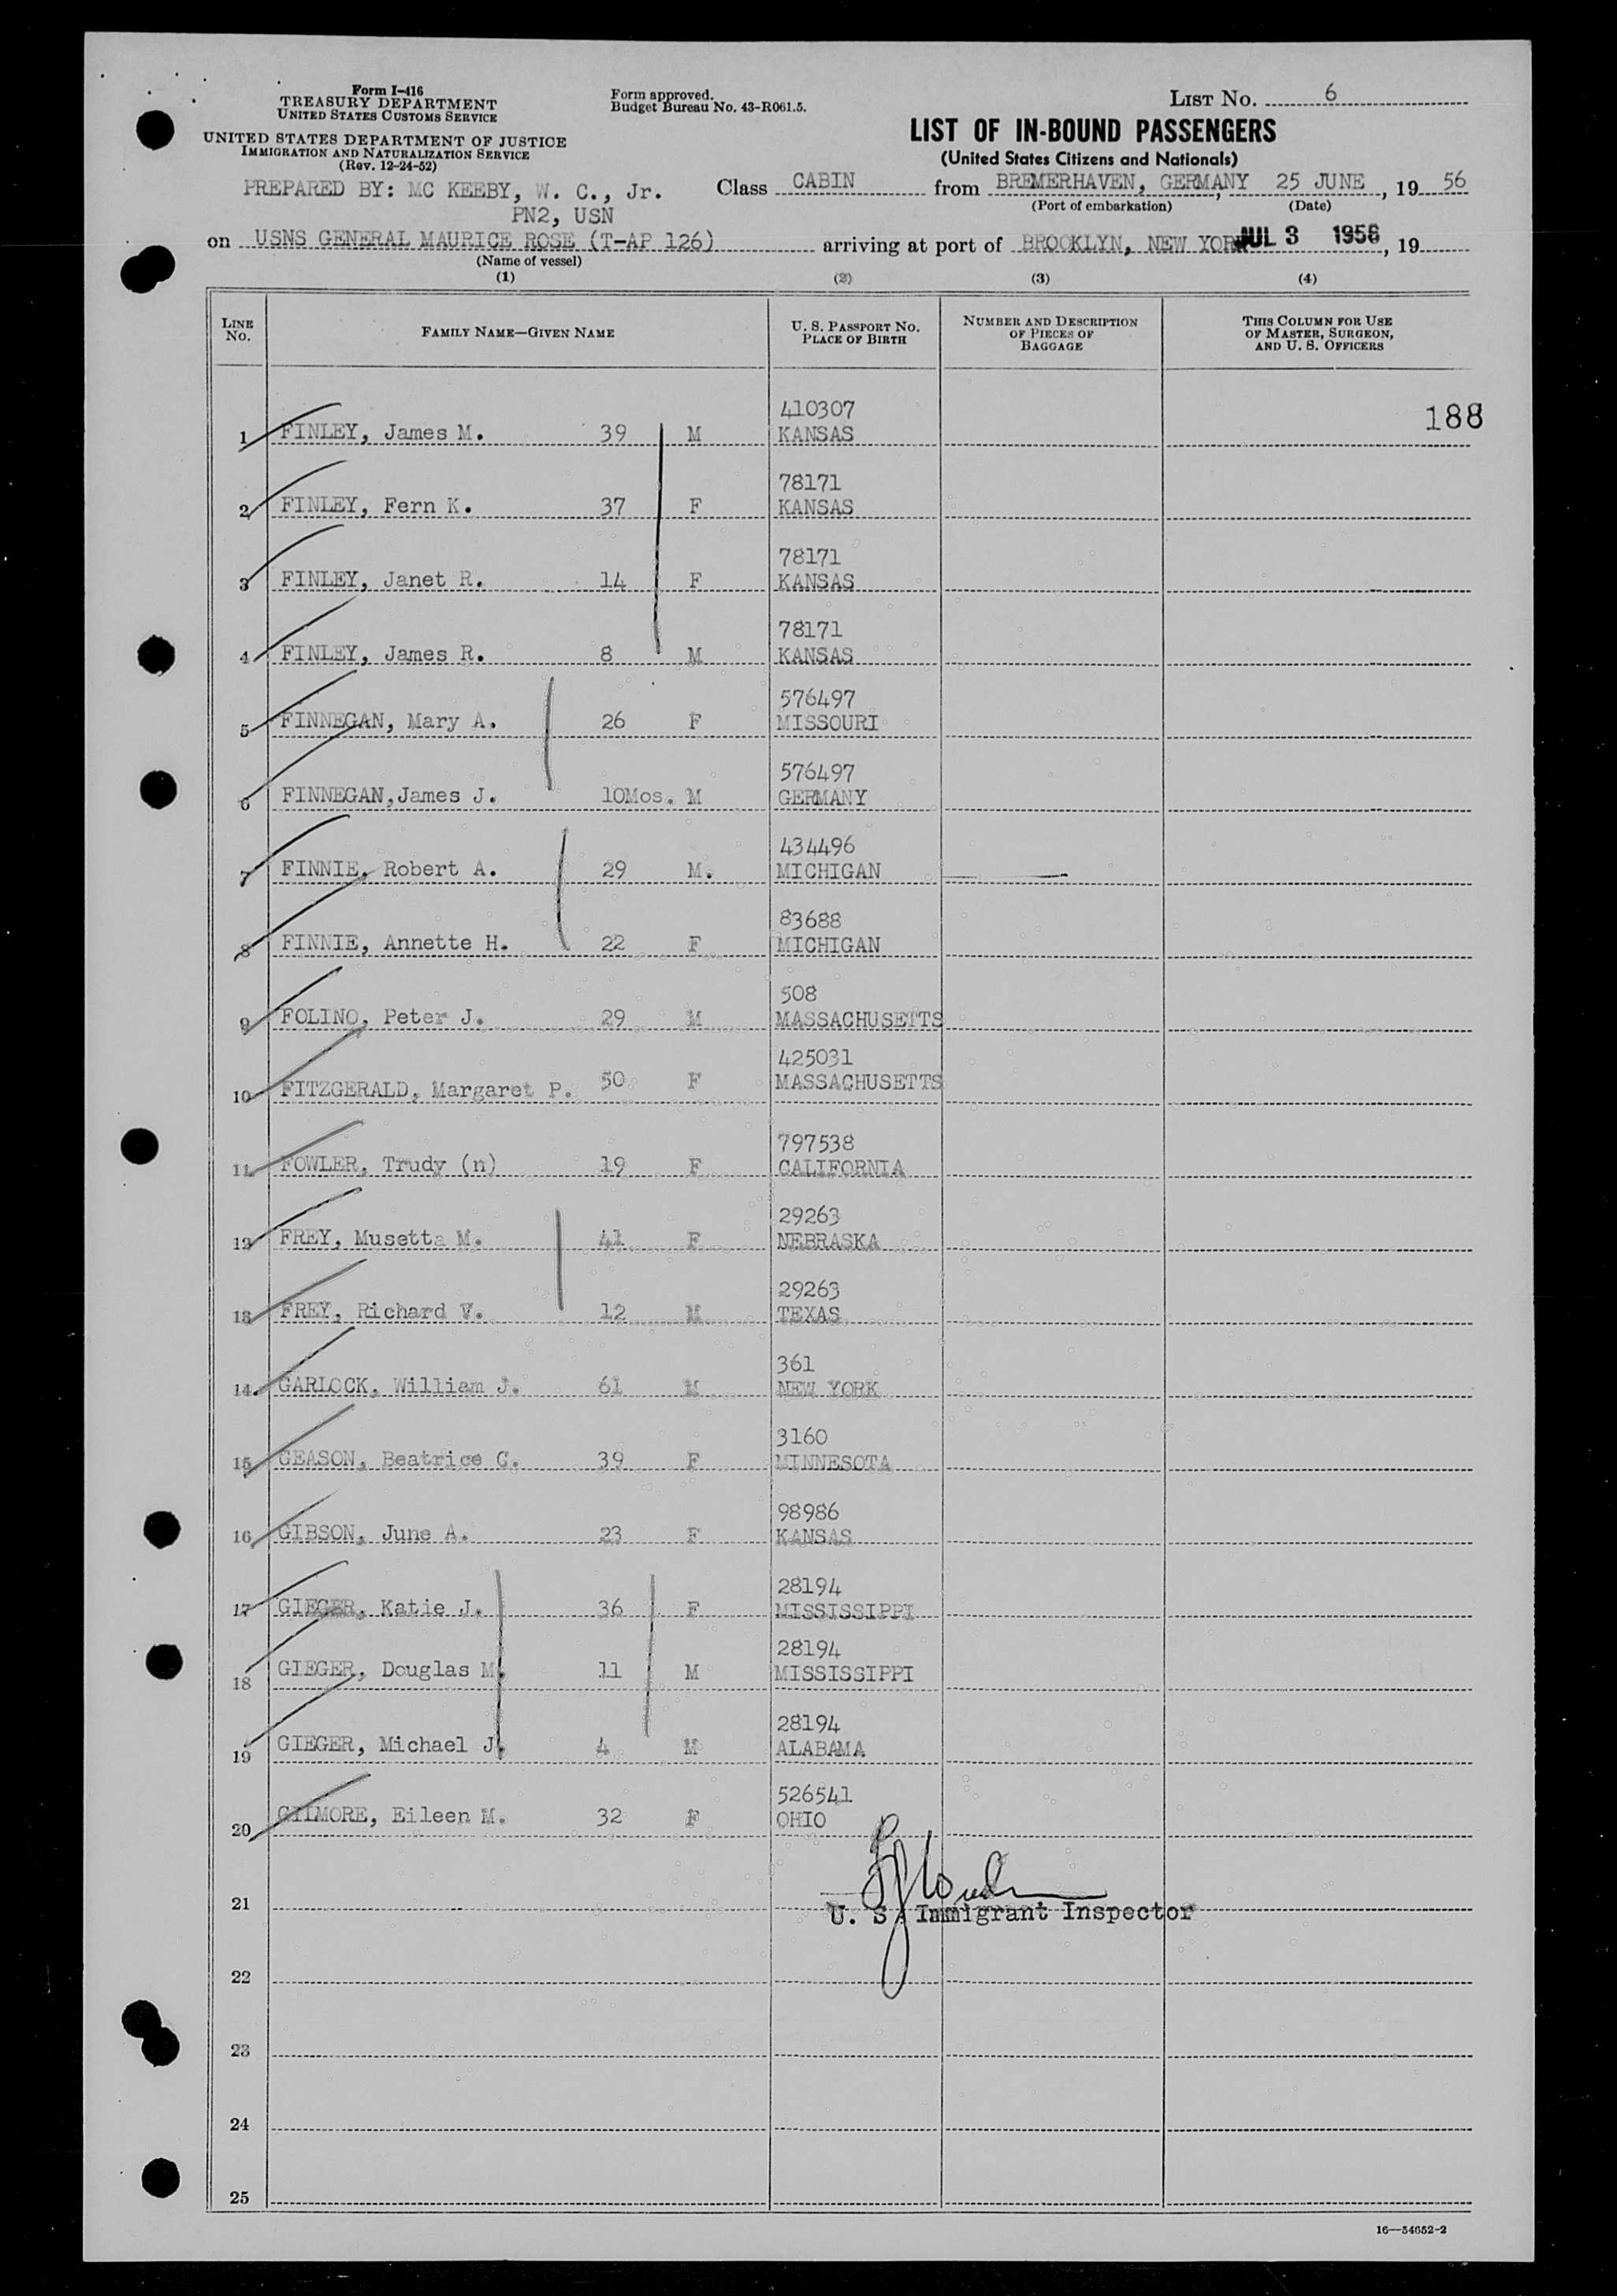 Form I-416
TREASURY DEPARTMENT
UNITED STATES CUSTOMS SERVICE
UNITED STATES DEPARTMENT OF JUSTICE
IMMIGRATION AND NATURALIZATION SERVICE
(Rev. 12-24-52)
Form approved.
Budget Bureau No. 43-R061.5.
LIST No. 6
LIST OF IN-BOUND PASSENGERS
(United States Citizens and Nationals)
PREPARED BY: MC KEEBY, W. C., Jr.
PN2, USN
Class CABIN from BREMERHAVEN, GERMANY, 25 JUNE, 19 56
(Port of embarkation) (Date)
on USNS GENERAL MAURICE ROSE (T-AP 126) arriving at port of BROOKLYN, NEW YORK JUL 3 1956, 19
(Name of vessel)
(1) (2) (3) (4)
LINE No. FAMILY NAME—GIVEN NAME U. S. PASSPORT NO. PLACE OF BIRTH NUMBER AND DESCRIPTION OF PIECES OF BAGGAGE THIS COLUMN FOR USE OF MASTER, SURGEON, AND U. S. OFFICERS
188
410307
1 FINLEY, James M. 39 M KANSAS
78171
2 FINLEY, Fern K. 37 F KANSAS
78171
3 FINLEY, Janet R. 14 F KANSAS
78171
4 FINLEY, James R. 8 M KANSAS
576497
5 FINNEGAN, Mary A. 26 F MISSOURI
576497
6 FINNEGAN,James J. 10Mos. M GERMANY
434496
7 FINNIE, Robert A. 29 M. MICHIGAN
83688
8 FINNIE, Annette H. 22 F MICHIGAN
508
9 FOLINO, Peter J. 29 M MASSACHUSETTS
425031
10 FITZGERALD, Margaret P. 50 F MASSACHUSETTS
797538
11 FOWLER, Trudy (n) 19 F CALIFORNIA
29263
12 FREY, Musetta M. 41 F NEBRASKA
29263
13 FREY, Richard V. 12 M TEXAS
361
14 GARLOCK, William J. 61 M NEW YORK
3160
15 GEASON, Beatrice C. 39 F MINNESOTA
98986
16 GIBSON, June A. 23 F KANSAS
28194
17 GIEGER, Katie J. 36 F MISSISSIPPI
28194
18 GIEGER, Douglas M. 11 M MISSISSIPPI
28194
19 GIEGER, Michael J. 4 M ALABAMA
526541
20 GILMORE, Eileen M. 32 F OHIO
21 U. S. Immigrant Inspector
22
23
24
25
16—54652-2